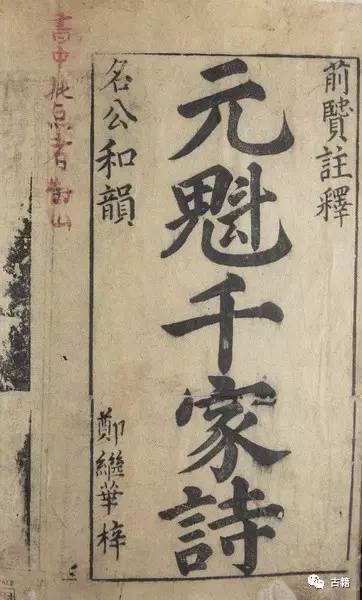 前賢註釋
元魁千家詩
名公和韻
鄭繼華梓
書中批点者
古籍